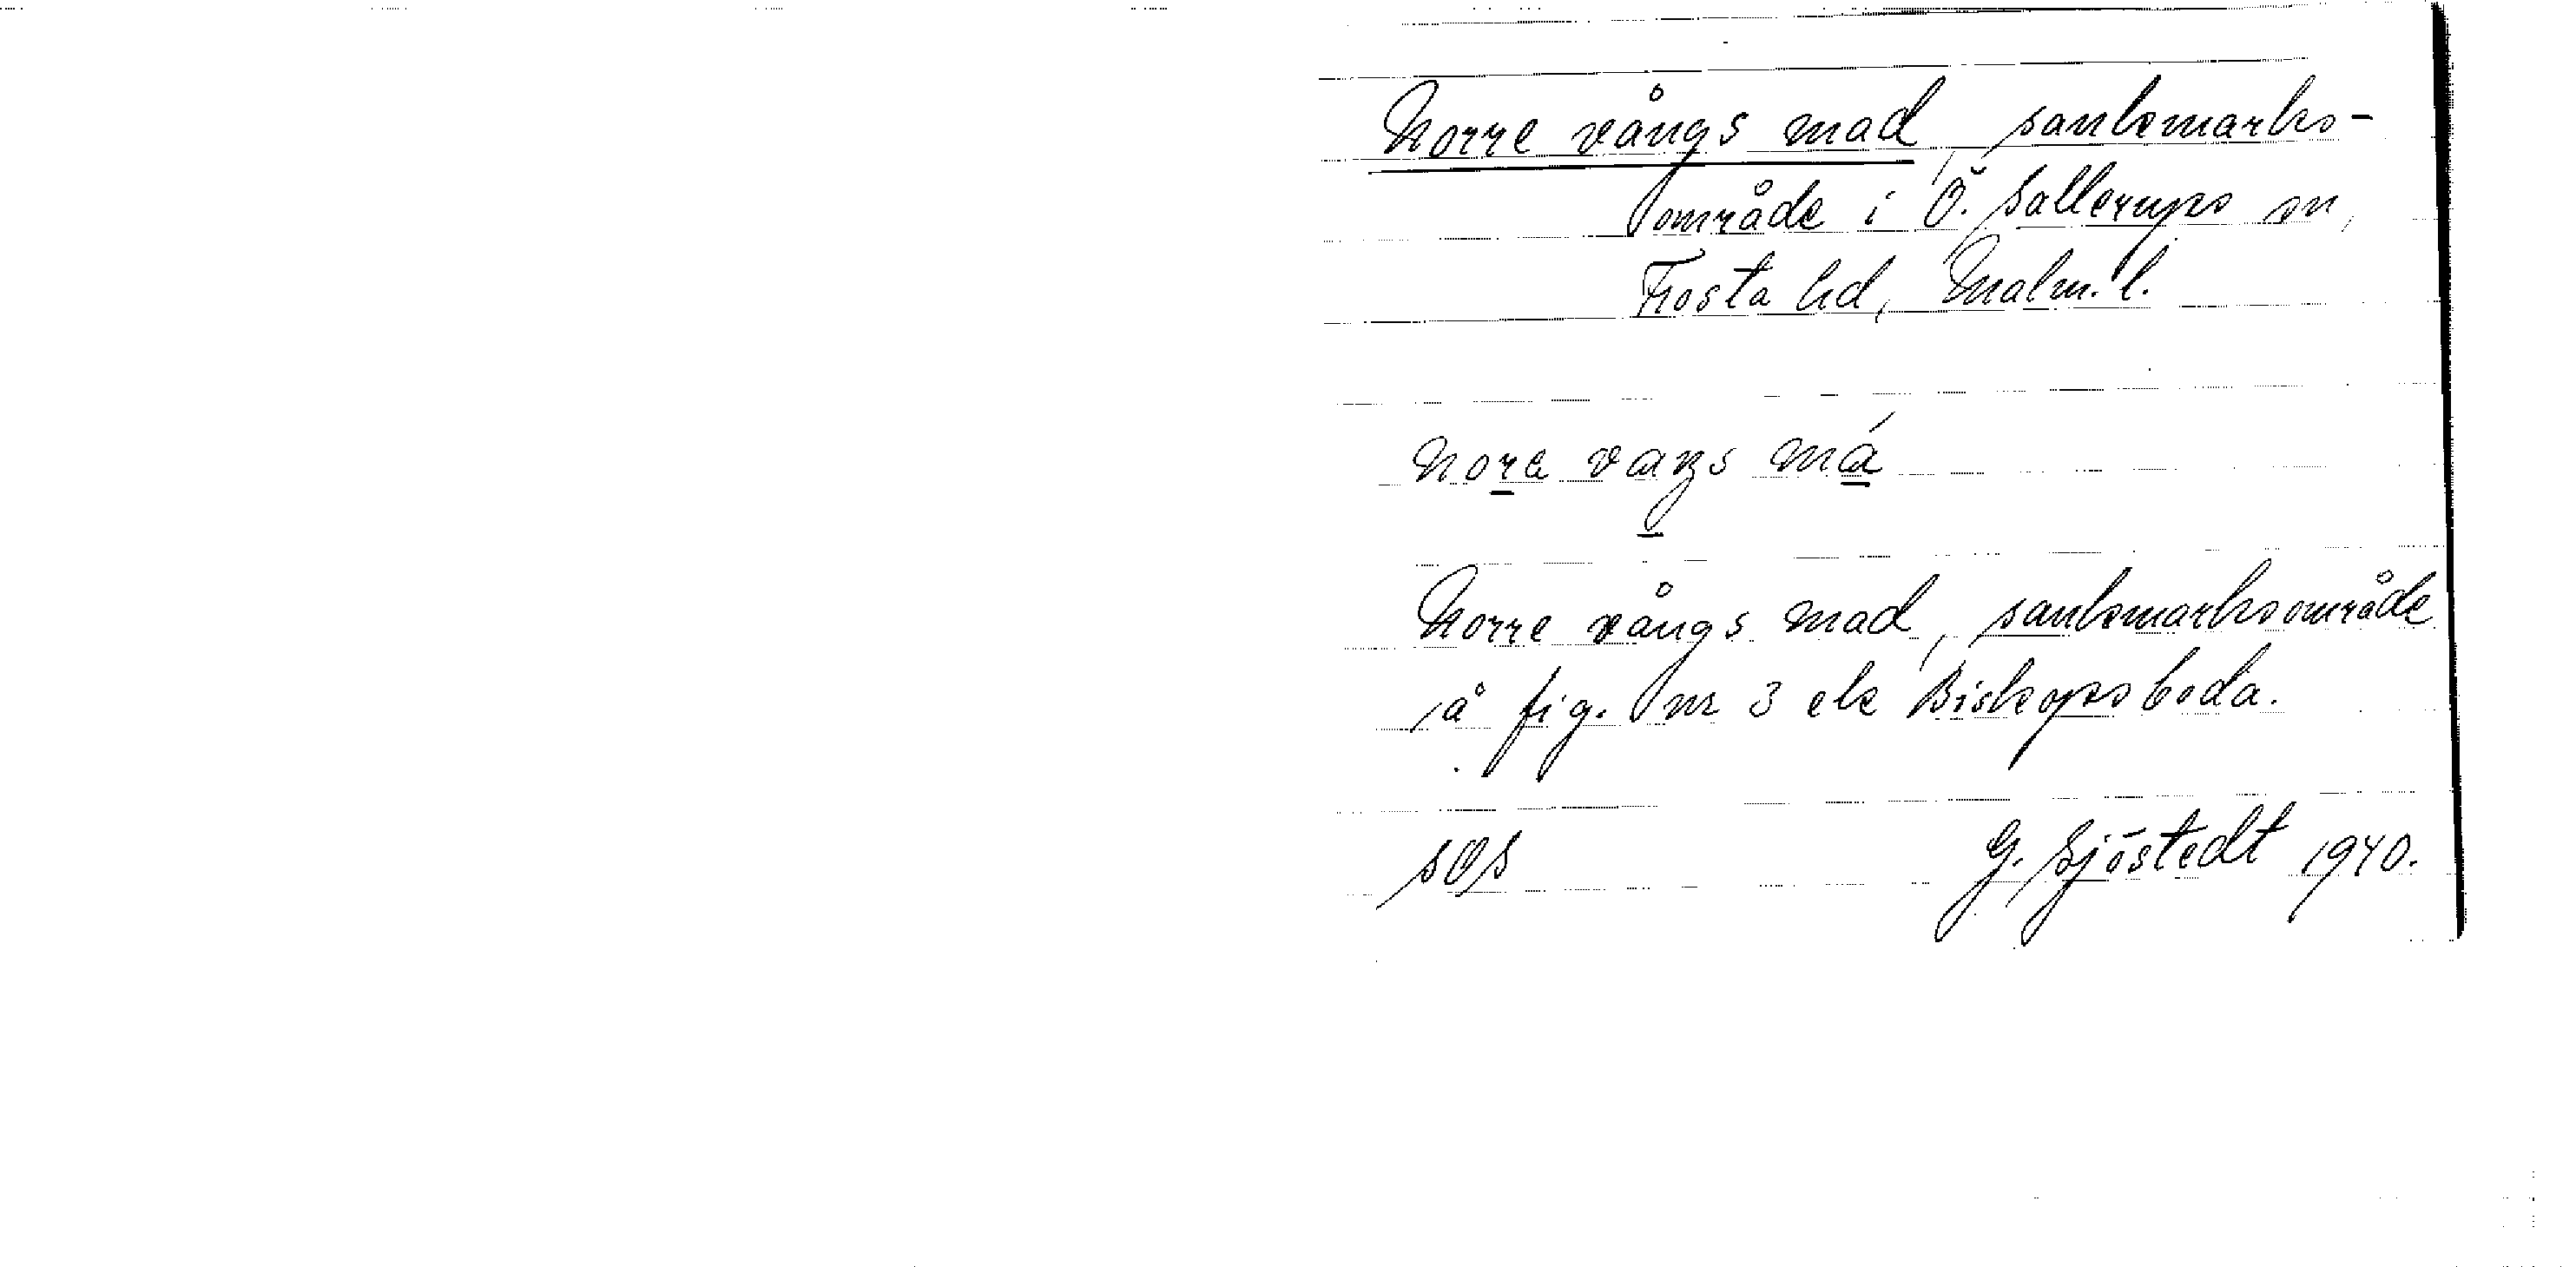 Norre vångs mad, sanksmarks-
område i Ö. Sallerups sn,
Frosta hd, Malm. l.
nore vaŋs má
Norre vångs mad, sanksmarksområde
å fig. nr 3 ek Biskopsboda.
SOS G. Sjöstedt 1940.